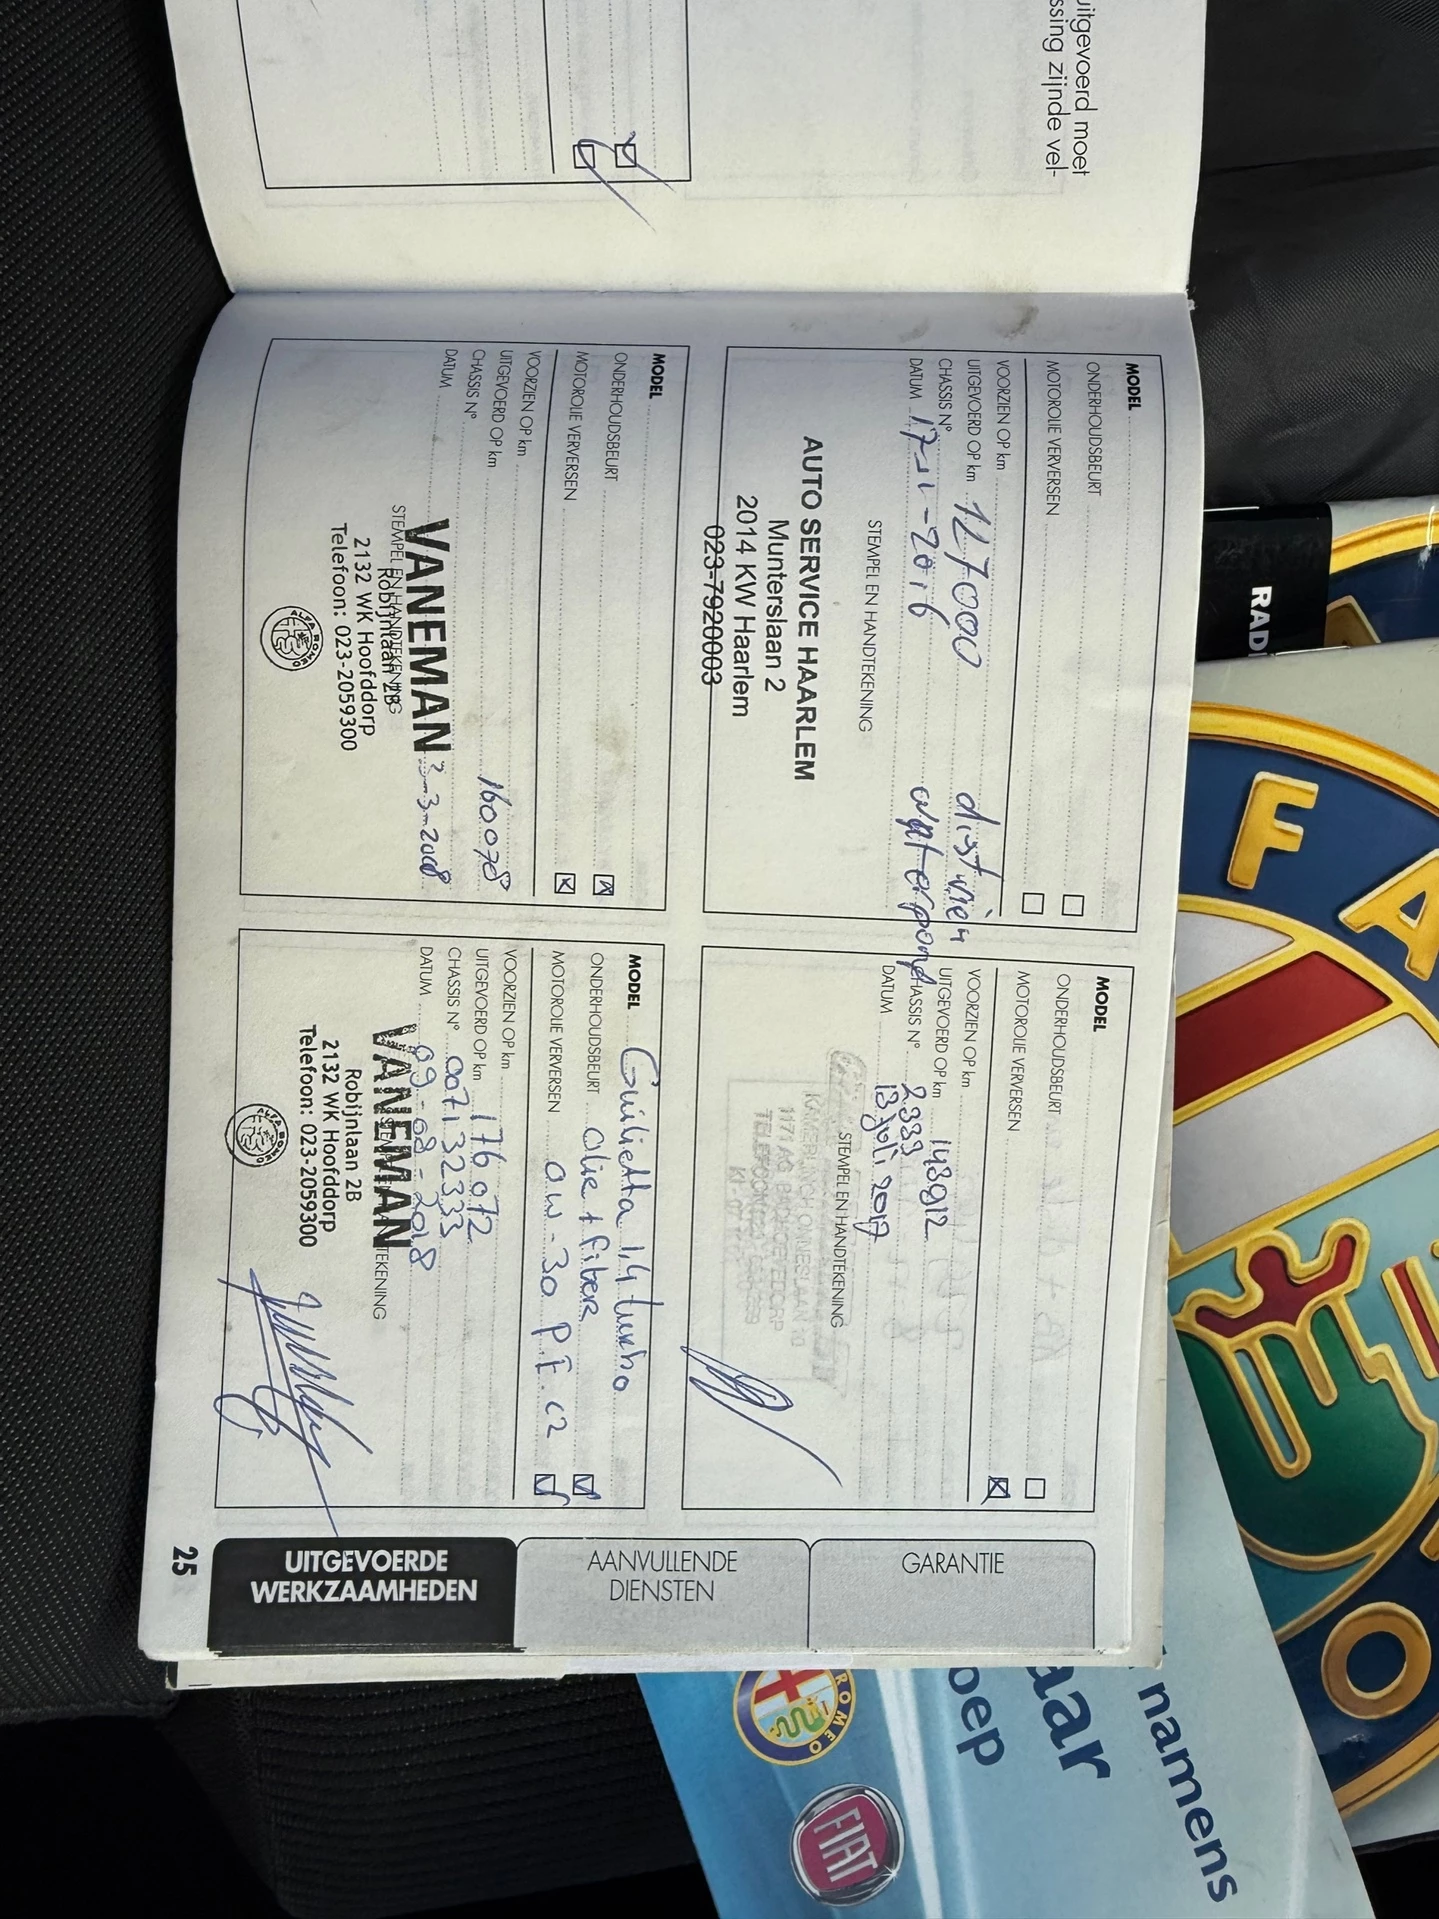 uitgevoerd moet
ssing zijnde vel-
MODEL
ONDERHOUDSBEURT
MOTOROLIE VERVERSEN
VOORZIEN OP km
UITGEVOERD OP km 127000 distrie4
CHASSIS N°
DATUM 17-11-2016 waterpomp
STEMPEL EN HANDTEKENING
AUTO SERVICE HAARLEM
Munterslaan 2
2014 KW Haarlem
023-7920003
MODEL
ONDERHOUDSBEURT
MOTOROLIE VERVERSEN
VOORZIEN OP km
UITGEVOERD OP km 143912
CHASSIS N° 2333
DATUM 13 juli 2017
STEMPEL EN HANDTEKENING
1171 AG BADHOEVEDORP
MODEL
ONDERHOUDSBEURT
MOTOROLIE VERVERSEN
VOORZIEN OP km
UITGEVOERD OP km 160078
CHASSIS N°
DATUM
VANEMAN
STEMPEL EN HANDTEKENING
Robijnlaan 2B
2132 WK Hoofddorp
Telefoon: 023-2059300
ALFA ROMEO
MODEL Guilietta 1,4 turbo
ONDERHOUDSBEURT olie + fiber
MOTOROLIE VERVERSEN OW-30 PI. C2
VOORZIEN OP km
UITGEVOERD OP km 176072
CHASSIS N° 007132333
DATUM 09-08-2018
VANEMAN
Robijnlaan 2B
2132 WK Hoofddorp
Telefoon: 023-2059300
ALFA ROMEO
GARANTIE
AANVULLENDE
DIENSTEN
UITGEVOERDE
WERKZAAMHEDEN
25
RAD
FA
O
namens
aar
oep
ROMEO
FIAT